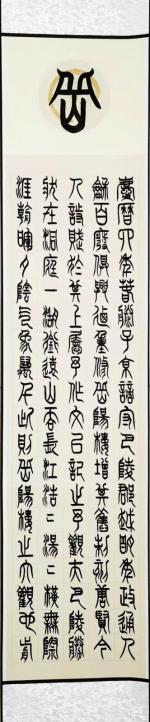 岳
慶曆四年春滕子京謫守巴陵郡越明年政通人
和百廢俱興乃重修岳陽樓增其舊制刻唐賢今
人詩賦於其上屬予作文以記之予觀夫巴陵勝
狀在洞庭一湖銜遠山吞長江浩〻湯〻橫無際
涯朝暉夕陰氣象萬千此則岳陽樓之大觀也前